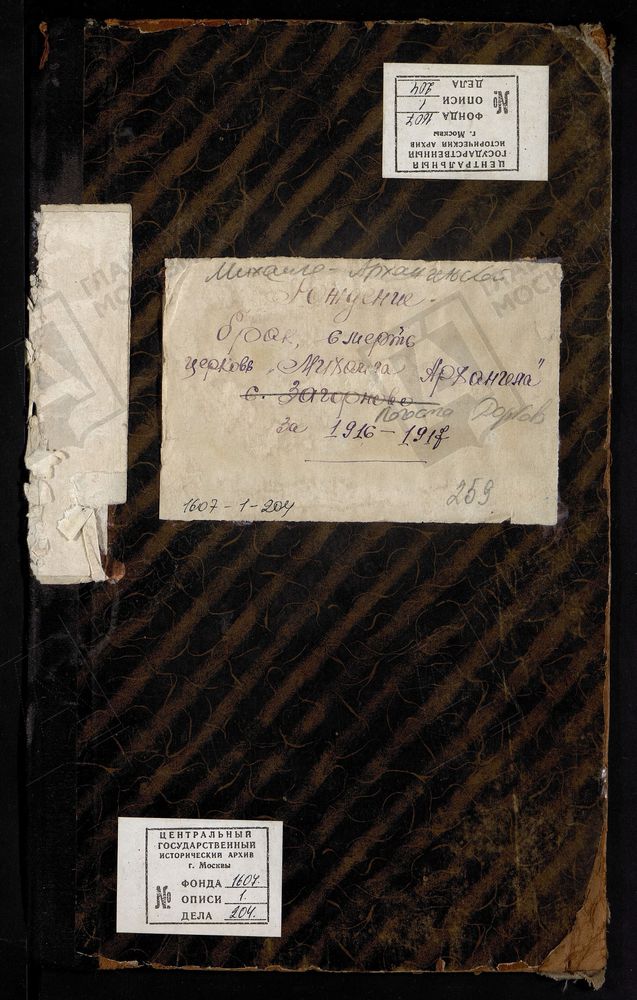 ЦЕНТРАЛЬНЫЙ
ГОСУДАРСТВЕННЫЙ
ИСТОРИЧЕСКИЙ АРХИВ
г. Москвы
№
ФОНДА 1607
ОПИСИ 1
ДЕЛА 204
Михаило-Архангельской
Рождение-
брак, смерть
церковь "Михаила Архангела"
с. Загорново
погоста
за 1916-1917
1607-1-204
259
ЦЕНТРАЛЬНЫЙ
ГОСУДАРСТВЕННЫЙ
ИСТОРИЧЕСКИЙ АРХИВ
г. Москвы
№
ФОНДА 1607.
ОПИСИ 1.
ДЕЛА 204.